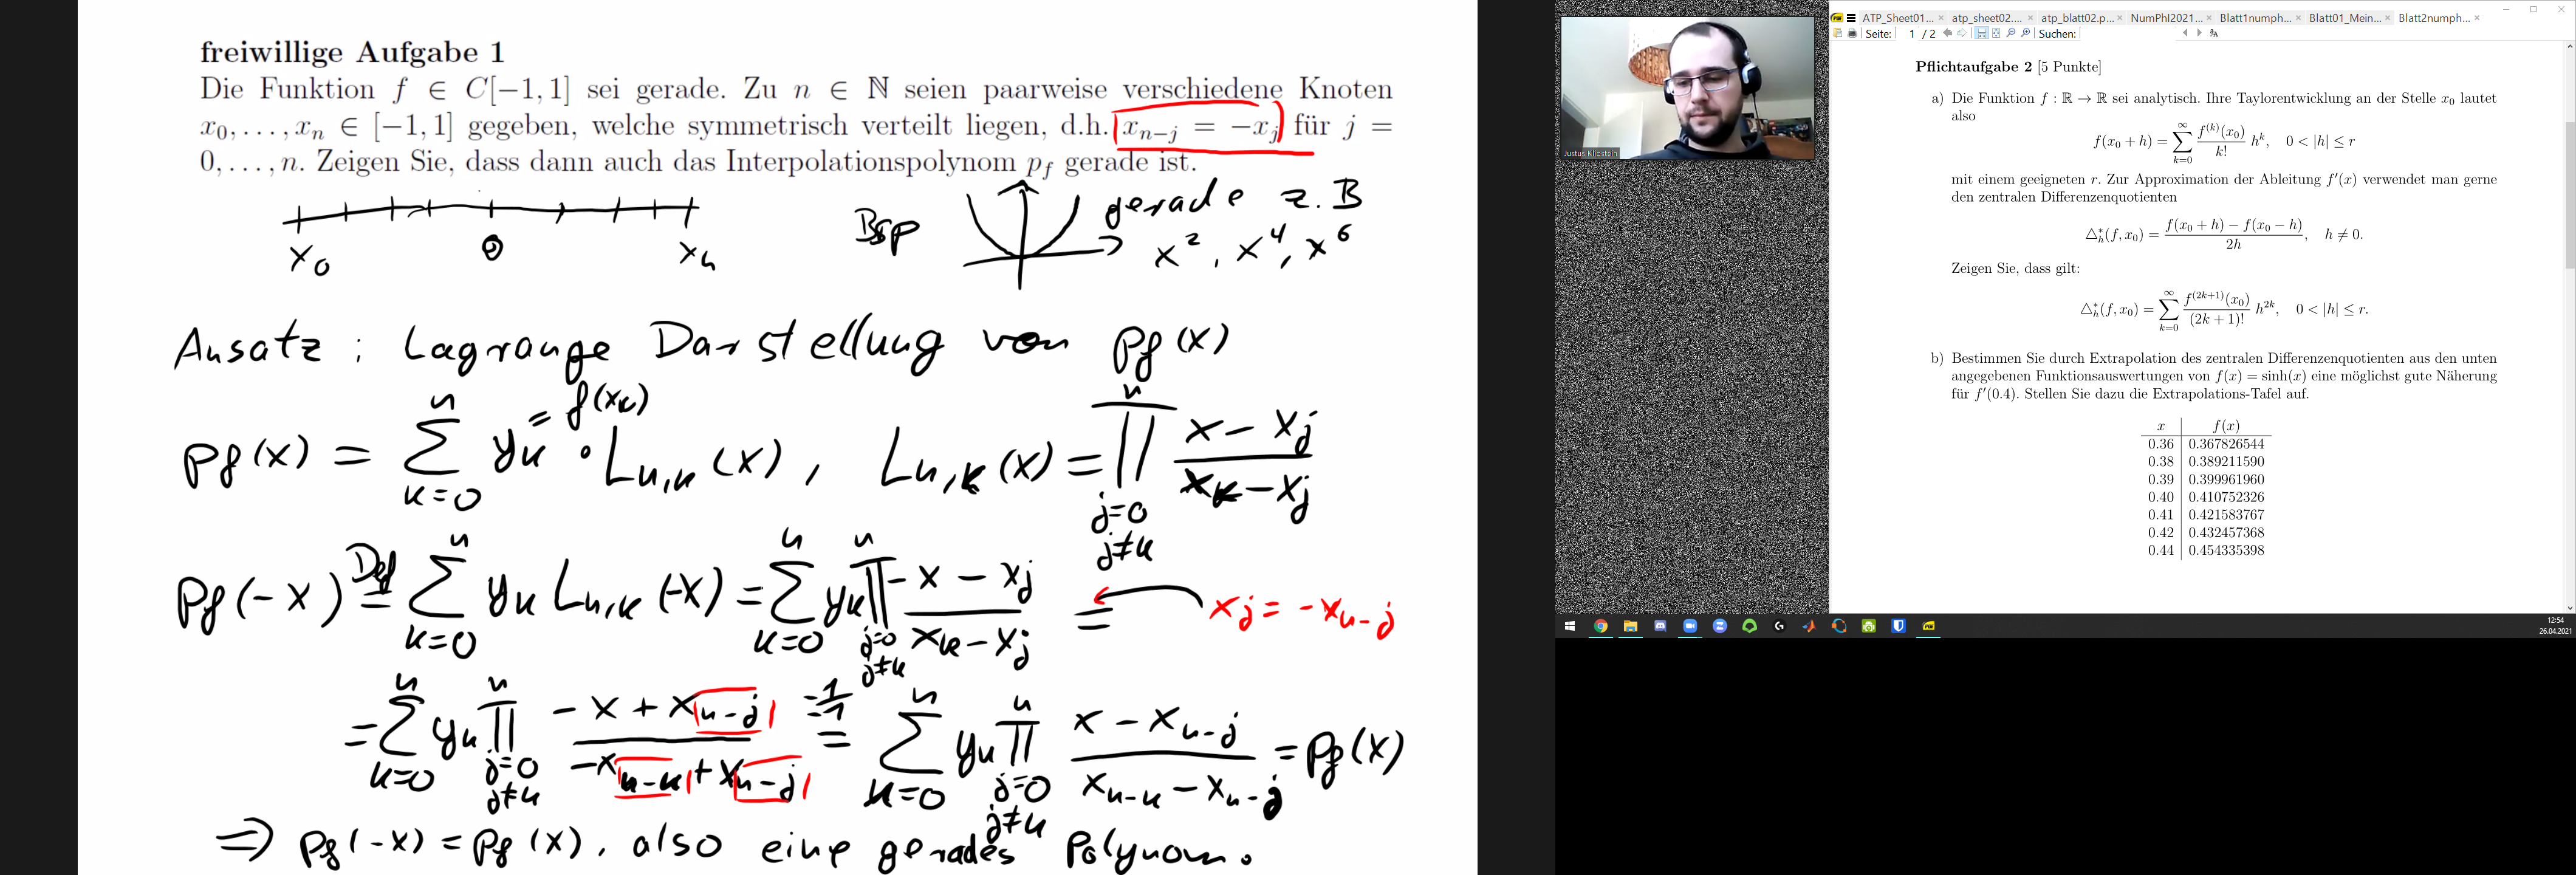 freiwillige Aufgabe 1
Die Funktion f ∈ C[−1, 1] sei gerade. Zu n ∈ ℕ seien paarweise verschiedene Knoten
x₀, . . . , xₙ ∈ [−1, 1] gegeben, welche symmetrisch verteilt liegen, d.h. xₙ₋ⱼ = −xⱼ für j =
0, . . . , n. Zeigen Sie, dass dann auch das Interpolationspolynom p_f gerade ist.
x₀ 0 xₙ
Bsp gerade z.B
x², x⁴, x⁶
Ansatz : Lagrange Darstellung von p_f(x)
p_f(x) = ∑_{k=0}^{n} y_k = f(x_k) · L_{n,k}(x), L_{n,k}(x) = ∏_{j=0, j≠k}^{n} (x − x_j)/(x_k − x_j)
p_f(−x) =^{Def} ∑_{k=0}^{n} y_k L_{n,k}(−x) = ∑_{k=0}^{n} y_k ∏_{j=0, j≠k}^{n} (−x − x_j)/(x_k − x_j) = x_j = −x_{n−j}
= ∑_{k=0}^{n} y_k ∏_{j=0, j≠k}^{n} (−x + x_{n−j})/(−x_{n−k} + x_{n−j}) =^{−1/−1} ∑_{k=0}^{n} y_k ∏_{j=0, j≠k}^{n} (x − x_{n−j})/(x_{n−k} − x_{n−j}) = p_f(x)
⇒ p_f(−x) = p_f(x), also eine gerades Polynom.
Justus Klipstein
ATP_Sheet01... × atp_sheet02.... × atp_blatt02.p... × NumPhI2021... × Blatt1numph... × Blatt01_Mein... × Blatt2numph... ×
Seite: 1 / 2 Suchen:
Pflichtaufgabe 2 [5 Punkte]
a) Die Funktion f : ℝ → ℝ sei analytisch. Ihre Taylorentwicklung an der Stelle x₀ lautet
also
f(x₀ + h) = ∑_{k=0}^{∞} f^{(k)}(x₀)/k! h^k, 0 < |h| ≤ r
mit einem geeigneten r. Zur Approximation der Ableitung f′(x) verwendet man gerne
den zentralen Differenzenquotienten
△*_h(f, x₀) = (f(x₀ + h) − f(x₀ − h))/2h, h ≠ 0.
Zeigen Sie, dass gilt:
△*_h(f, x₀) = ∑_{k=0}^{∞} f^{(2k+1)}(x₀)/(2k + 1)! h^{2k}, 0 < |h| ≤ r.
b) Bestimmen Sie durch Extrapolation des zentralen Differenzenquotienten aus den unten
angegebenen Funktionsauswertungen von f(x) = sinh(x) eine möglichst gute Näherung
für f′(0.4). Stellen Sie dazu die Extrapolations-Tafel auf.
x f(x)
0.36 0.367826544
0.38 0.389211590
0.39 0.399961960
0.40 0.410752326
0.41 0.421583767
0.42 0.432457368
0.44 0.454335398
12:54
26.04.2021